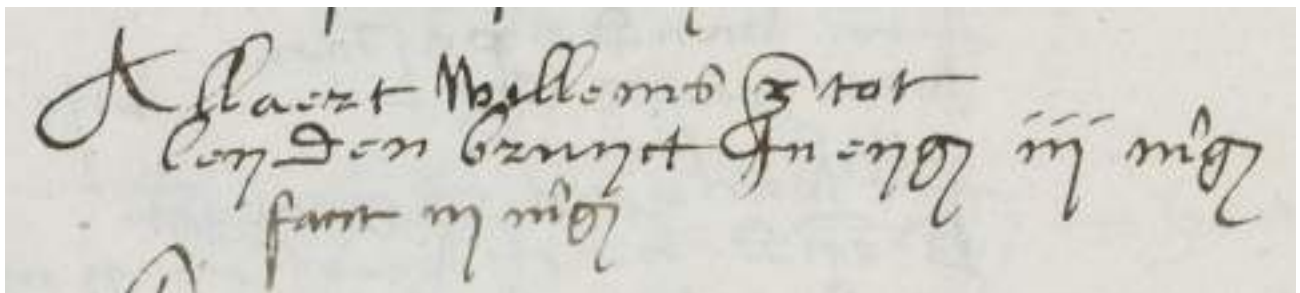 Allaert Willems z tot
leyden bruyct In eyg iij mg
facit iij mg